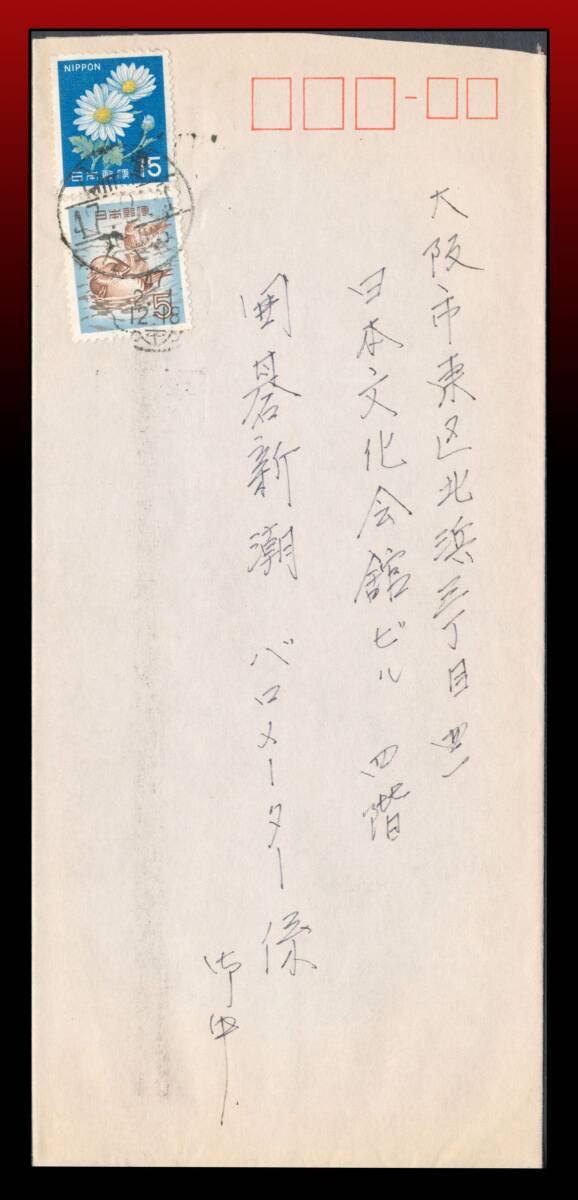 大阪市東区北浜三丁目四一
日本文化会館ビル 四階
囲碁新潮 バロメーター係
御中
NIPPON
日本郵便
15
日本郵便
5
47
12-18